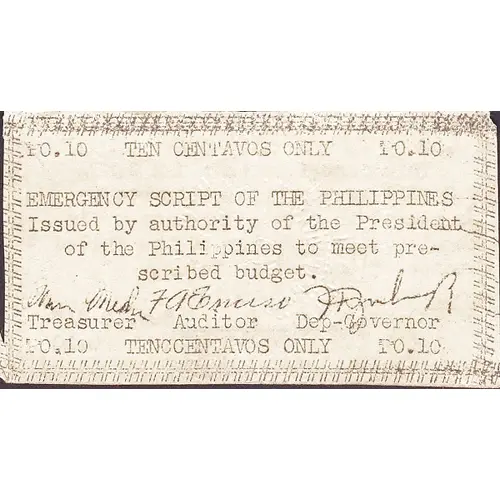 P0.10 TEN CENTAVOS ONLY P0.10
EMERGENCY SCRIPT OF THE PHILIPPINES
Issued by authority of the President
of the Philippines to meet pre-
scribed budget.
Treasurer Auditor Dep-Governor
P0.10 TENCCENTAVOS ONLY P0.10